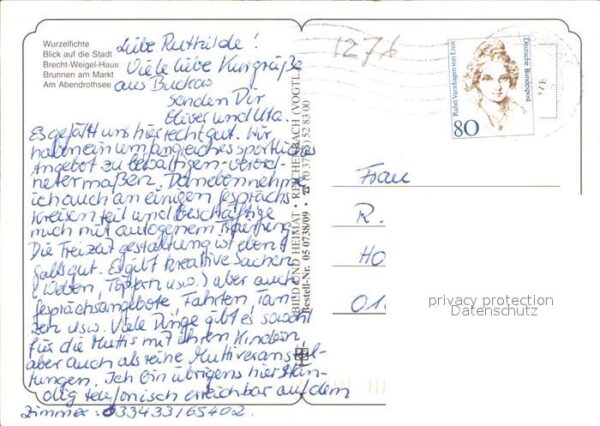 Wurzelfichte
Blick auf die Stadt
Brecht-Weigel-Haus
Brunnen am Markt
Am Abendrothsee
Liebe Ruthilde!
Viele liebe Kurgrüße
aus Buckow
senden Dir
und Uta.
Es gefällt uns hier recht gut. Wir
haben ein umfangreiches sportliches
Angebot zu bewältigen - verord-
netermaßen. Daneben nehme
ich auch an einigen Gesprächs-
kreisen teil und beschäftige
mich mit autogenem
Die Freizeitgestaltung ist eben-
falls gut. Es gibt kreative Sachen
(Weben, Töpfern usw.) aber auch
Gesprächsangebote, Fahrten, Tan-
zen usw. Viele Dinge gibt es sowohl
für die Muttis mit ihren Kindern,
aber auch als reine Muttiveranstal-
tungen. Ich bin übrigens hier stän-
dig telefonisch erreichbar auf dem
Zimmer: 033433/65402.
BILD UND HEIMAT · REICHENBACH (VOGTL.)
Bestell-Nr. 05 0738/09 · 52 83 00
1276
Rahel Varnhagen von Ense
Deutsche Bundespost
80
Frau
R.
HO
01
privacy protection
Datenschutz